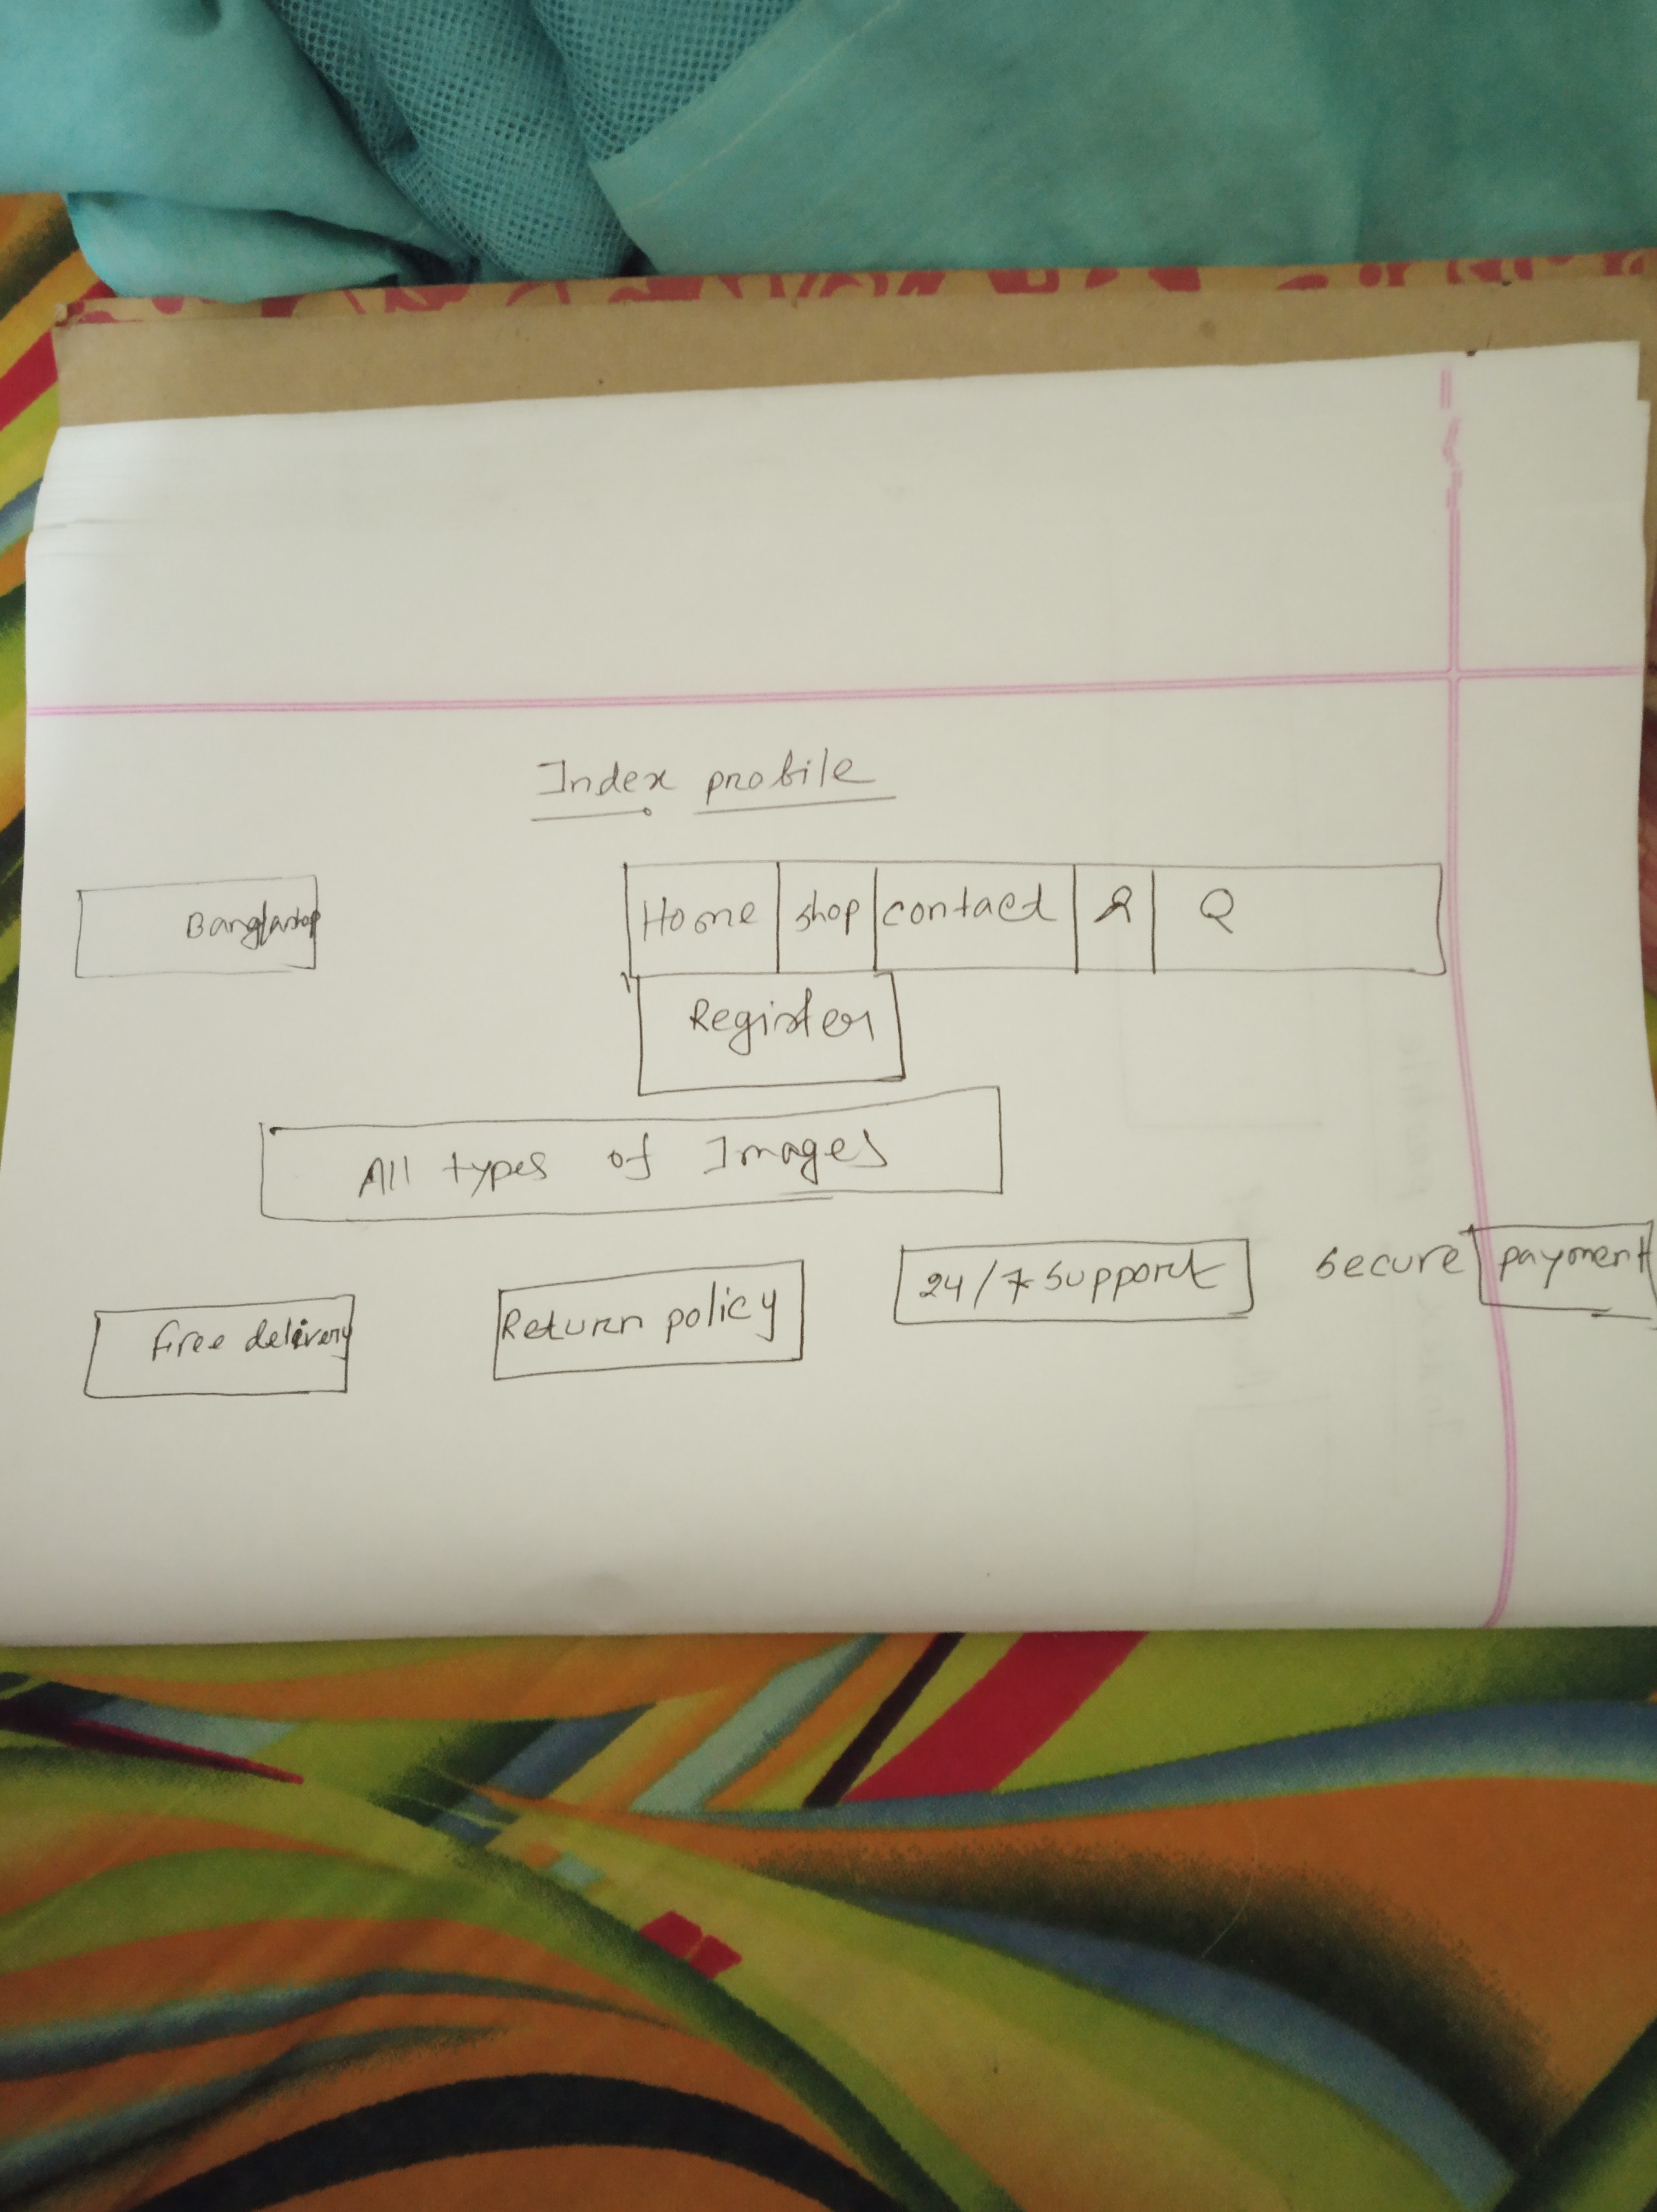 Index profile
Banglashop
Home shop contact
Register
All types of Images
Free delivery Return policy 24/7 support secure payment